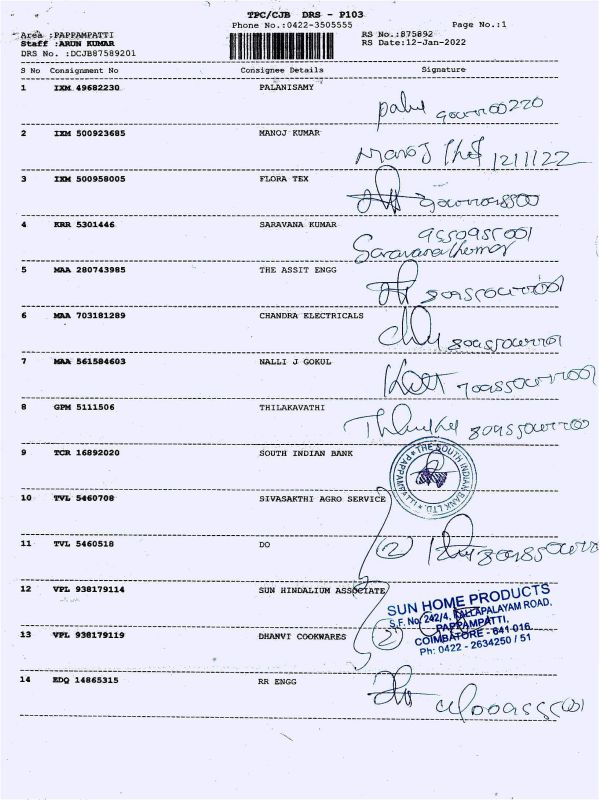 TPC/CJB DRS - P103
Phone No.:0422-3505555 Page No.:1
Area :PAPPAMPATTI RS No.:875892
Staff :ARUN KUMAR RS Date:12-Jan-2022
DRS No. :DCJB87589201
S No Consignment No Consignee Details Signature
1 IXM 49682230 PALANISAMY
2 IXM 500923685 MANOJ KUMAR
Manoj 12/1/22
3 IXM 500958005 FLORA TEX
4 KRR 5301446 SARAVANA KUMAR
Saravanakumar
5 MAA 280743985 THE ASSIT ENGG
6 MAA 703181289 CHANDRA ELECTRICALS
7 MAA 561584603 NALLI J GOKUL
8 GPM 5111506 THILAKAVATHI
9 TCR 16892020 SOUTH INDIAN BANK
THE SOUTH INDIAN BANK LTD. PAPPAMPATTI
10 TVL 5460708 SIVASAKTHI AGRO SERVICE
11 TVL 5460518 DO
2
12 VPL 938179114 SUN HINDALIUM ASSOCIATE
SUN HOME PRODUCTS
S.F. No. 242/4, KALLAPALAYAM ROAD,
PAPPAMPATTI,
COIMBATORE - 641 016.
Ph: 0422 - 2634250 / 51
13 VPL 938179119 DHANVI COOKWARES
2
14 EDQ 14865315 RR ENGG